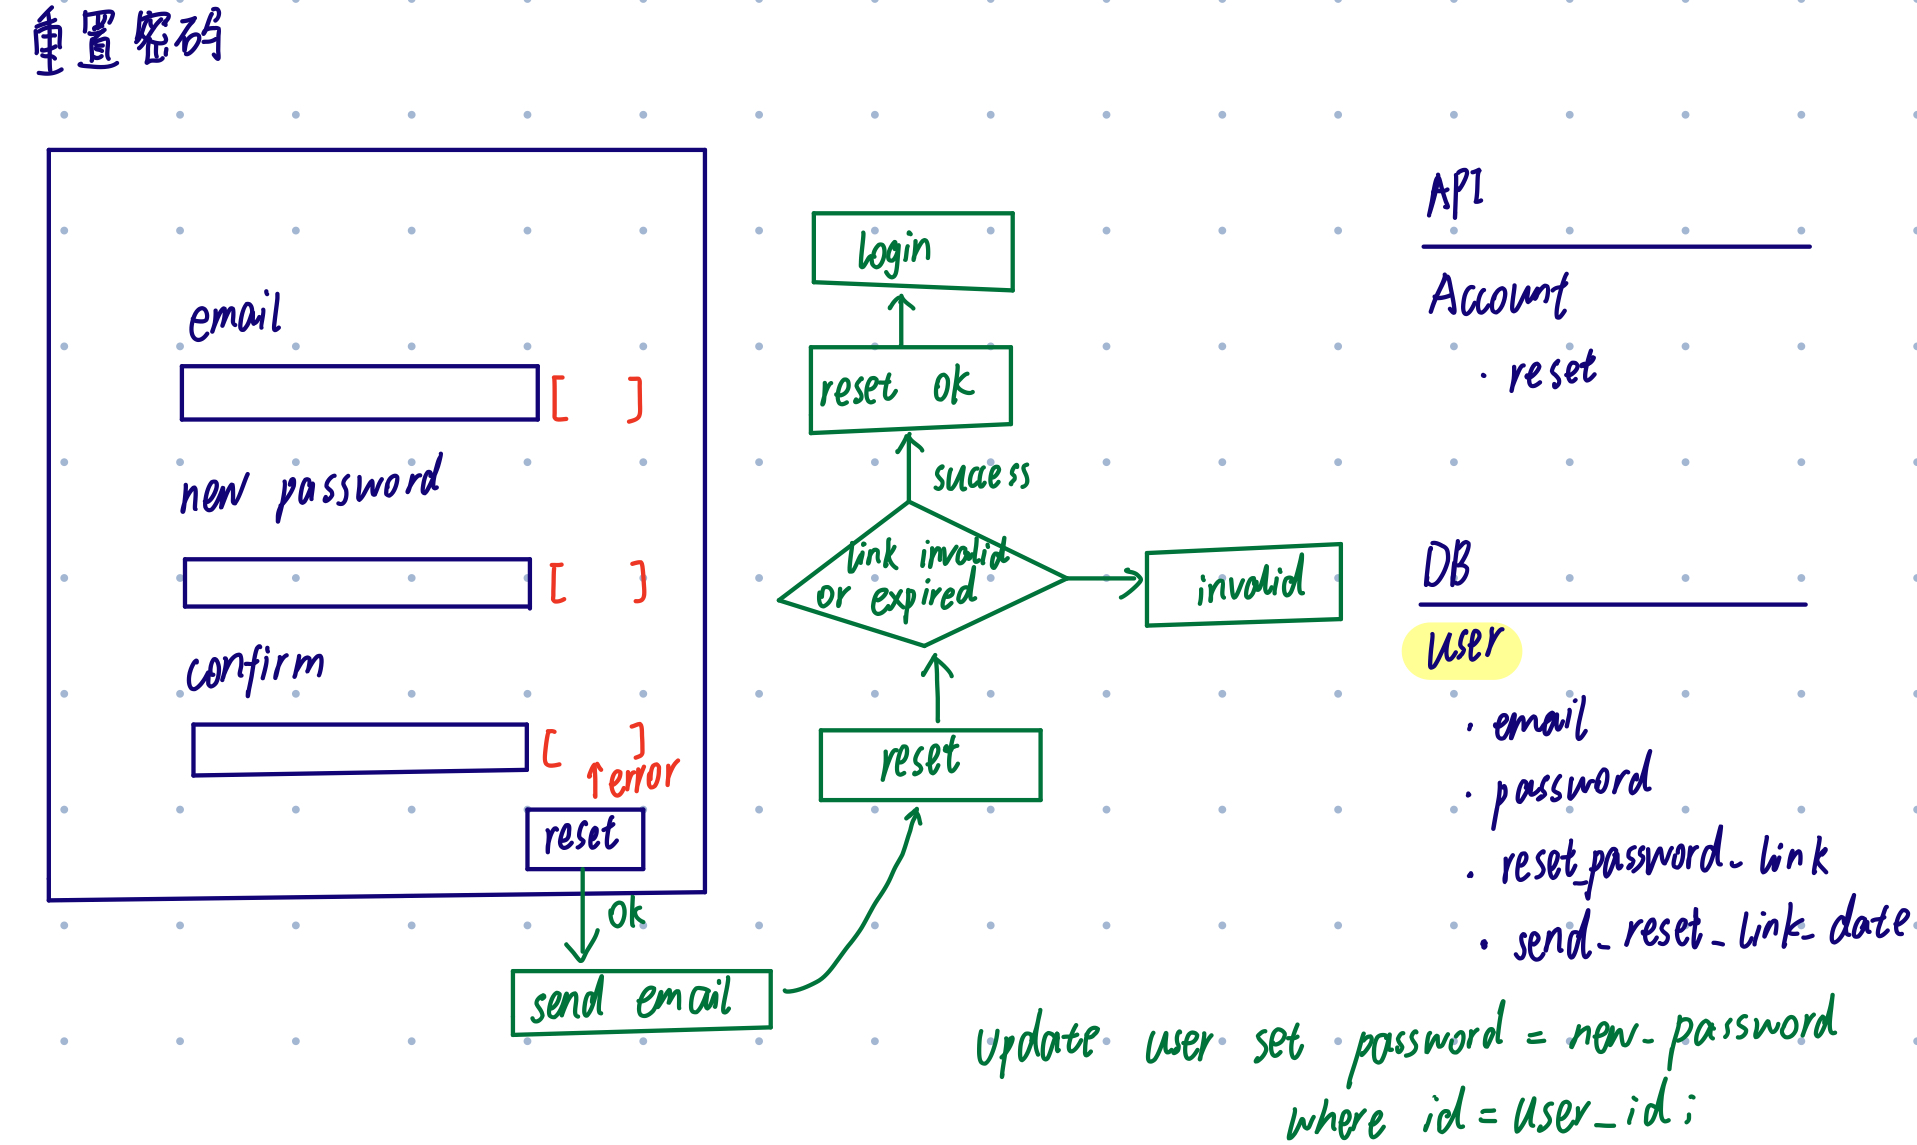 重置密码
email
new password
confirm
error
reset
ok
send email
login
reset ok
success
link invalid
or expired
invalid
reset
API
Account
· reset
DB
user
· email
· password
· reset_password_link
· send_reset_link_date
Update user set password = new_password
where id = user_id;